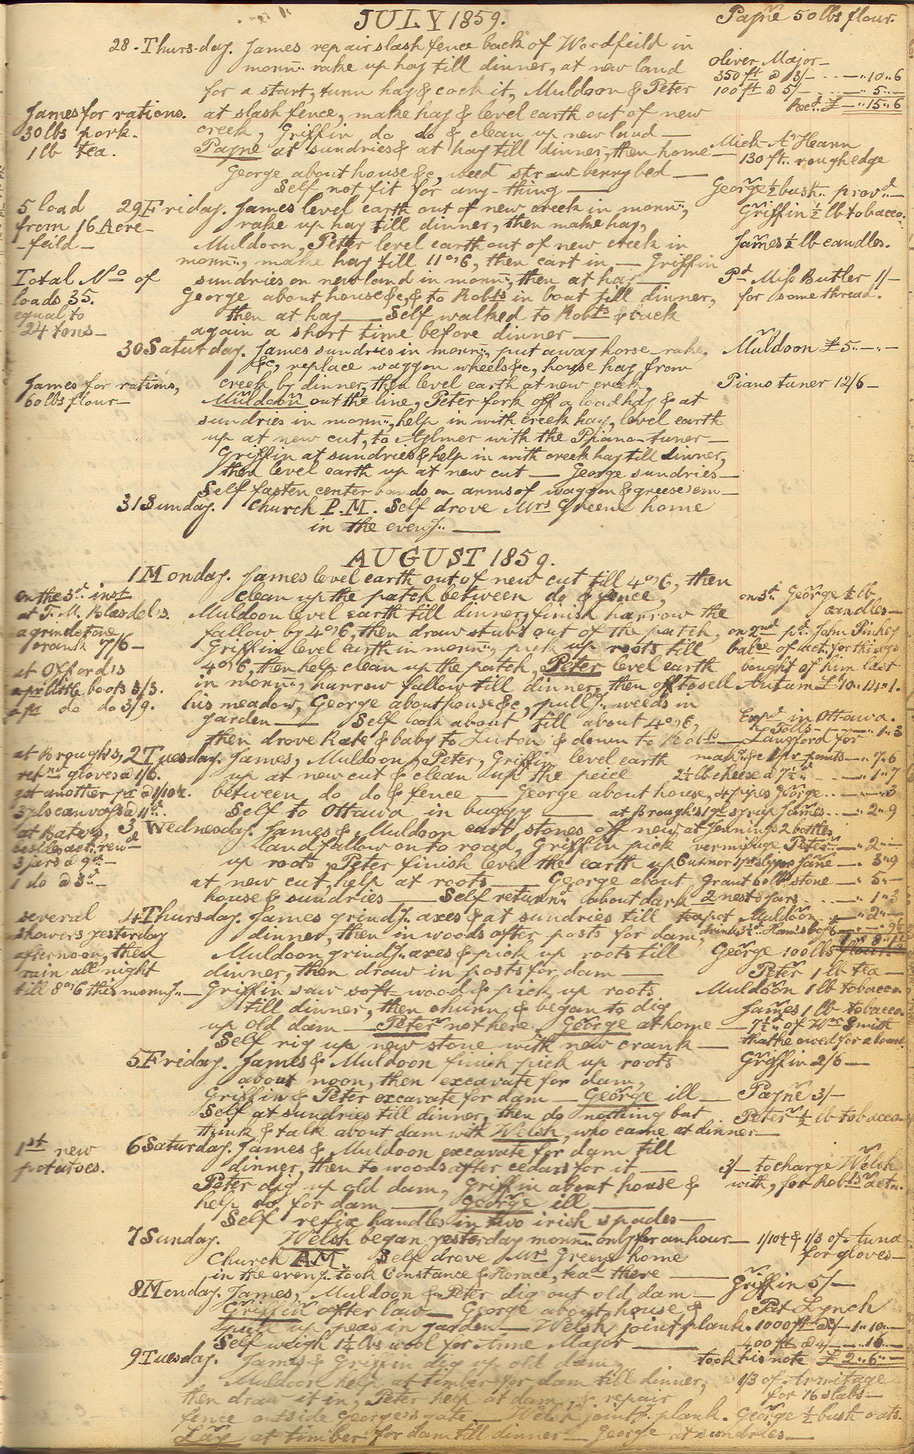 JULY 1859.
Payne 50 lbs flour.
28 - Thurs-day. James repair slash fence back of Woodfeild in
morng. rake up hay till dinner, at new land
for a start, turn hay & cock it, Muldoon & Peter
James for rations. at slash fence, make hay & level earth out of new
30 lbs pork. creek, Griffin do do & clean up new land —
1 lb tea. Payne at sundries & at hay till dinner, then home —
George about house &c, weed strawberry bed —
Self not fit for any-thing —
Oliver Major —
350 ft @ 3/- - - - —"10"6
100 ft @ 5/- - - - —" 5"—
Recd. £ —"15"6
Mick A'Hearn
130 ft. rough edge
George ½ bush. provd.
5 load 29 Friday. James level earth out of new creek in morng,
from 16 Acre- rake up hay till dinner, then make hay,
-feild — Muldoon, Peter level earth out of new creek in
morng, make hay till 11 or 6, then cart in — Griffin
Total No of sundries on new land in morng, then at hay —
loads 35. George about house &c, & to Robts in boat till dinner,
equal to then at hay — Self walked to Robts & back
24 tons — again a short time before dinner —
Griffin ½ lb tobacco.
James ½ lb candles.
Pd Miss Butler 1/-
for some thread.
30 Saturday. James sundries in morng, put away horse rake,
&c, replace waggon wheels &c, house hay from
James for rations, creek by dinner, then level earth at new creek,
60 lbs flour — Muldoon out the line, Peter fork off a load hay & at
sundries in morng, help in with creek hay, level earth
up at new cut, to Aylmer with the Piano-tuner —
Griffin at sundries & help in with creek hay till dinner,
then level earth up at new cut — George sundries —
Self fasten center bands on arms of waggon & greese em —
Muldoon £5"—"—
Piano tuner 12/6 —
31 Sunday. Church P.M. Self drove Mrs Greene home
in the eveng. —
AUGUST 1859.
1 Monday. James level earth out of new cut till 4 or 6, then
on the 3d inst clean up the patch between do & fence,
at T. M. Blasdel's Muldoon level earth till dinner, finish harrow the
a grindstone fallow by 4 or 6, then draw stubs out of the patch,
crank 17/6 — Griffin level earth in morng, pick up roots till
at Oxford's 4 or 6, then help clean up the patch, Peter level earth
a pr little boots 3/3. in morng, harrow fallow till dinner, then off to sell
a pr do do 3/9. his meadow, George about house &c, pullg weeds in
garden — Self look about till about 4 or 6,
then drove Kate & baby to Luton & down to Robts —
on 1st George ½ lb
candles —
on 2nd pd. John Pinhey
balce of act. for things
bought of him last
Autumn £10"14"1.
Expd in Ottawa.
Tolls - - - —"1"3
Langford for
at Brough's, 2 Tuesday. James, Muldoon, Peter, Griffin level earth
retd gloves @ 1/6. up at new cut & clean up the peice
got another pr @ 1/10½. between do do & fence — George about house,
3 yds canvas @ 11d. Self to Ottawa in buggy —
2½ lb cheese @ 7½d - - —"1"7
at Brough's 19 strap James - - —"2"9
at Bate's, 3 Wednesday. James & Muldoon cart stones off new
land fallow on to road, Griffin pick
3 pairs @ 9d — up roots, Peter finish level the earth up
1 do @ 3d — at new cut, help at roots — George about
house & sundries — Self returnd about dark
at Jennings 2 bottles
vermifuge Peter - - —"2"—
Grant 60 lb stone —" 5"—
2 nests jars - - - —"1"3
several 4 Thursday. James grindg. axes & at sundries till
showers yesterday dinner, then in woods after posts for dam,
afternoon, then Muldoon grindg. axes & pick up roots till
rain all night dinner, then draw in posts for dam —
till 8 or 6 this morng. — Griffin saw soft wood & pick up roots
till dinner, then churn, & began to dig
up old dam — Peter not here. George at home —
Self rig up new stone with new crank —
teapot Muldoon - - —"2"—
George 100 lbs
Peter 1 lb tea —
Muldoon 1 lb tobacco
James 1 lb tobacco
— 7½d of Wm Smith
that he owed for a boat.
5 Friday. James & Muldoon finish pick up roots
about noon, then excavate for dam,
Griffin & Peter excavate for dam — George ill —
Self at sundries till dinner, then do nothing but
think & talk about dam with Welsh, who came at dinner —
Griffin 2/6 —
Payne 3/-
Peter ½ lb tobacco —
1st new 6 Saturday. James & Muldoon excavate for dam till
potatoes. dinner, then to woods after cedars for it —
Peter dig up old dam, Griffin about house &
help do for dam — George ill —
Self refix handles in two irish spades —
3/- to charge Welsh
with, for Robts
7 Sunday. Welsh began yesterday morng only for an hour —
Church AM. Self drove Mrs Greene home
in the eveng. took Constance & Horace, tead there —
1/10½ & 1/3 of fund
for gloves —
8 Monday. James, Muldoon & Peter dig out old dam —
Griffin after law — George about house &
up peas in garden — Welsh joint plank.
Self weigh 1½ lbs wool for Anne Major —
Griffin 5/-
Pat Lynch
1000 ft @ 3/- 1"10"—
400 ft @ 4/- —"16"—
took his note £2"6"—
9 Tuesday. James & Griffin dig up old dam,
Muldoon help at timber for dam till dinner,
then draw it in, Peter help at dam, & repair
fence outside George's gate — Welsh jointg. plank.
at timber for dam till dinner — George at sundries —
1/3 of Armitage
for 16 slabs —
George ½ bush oats.